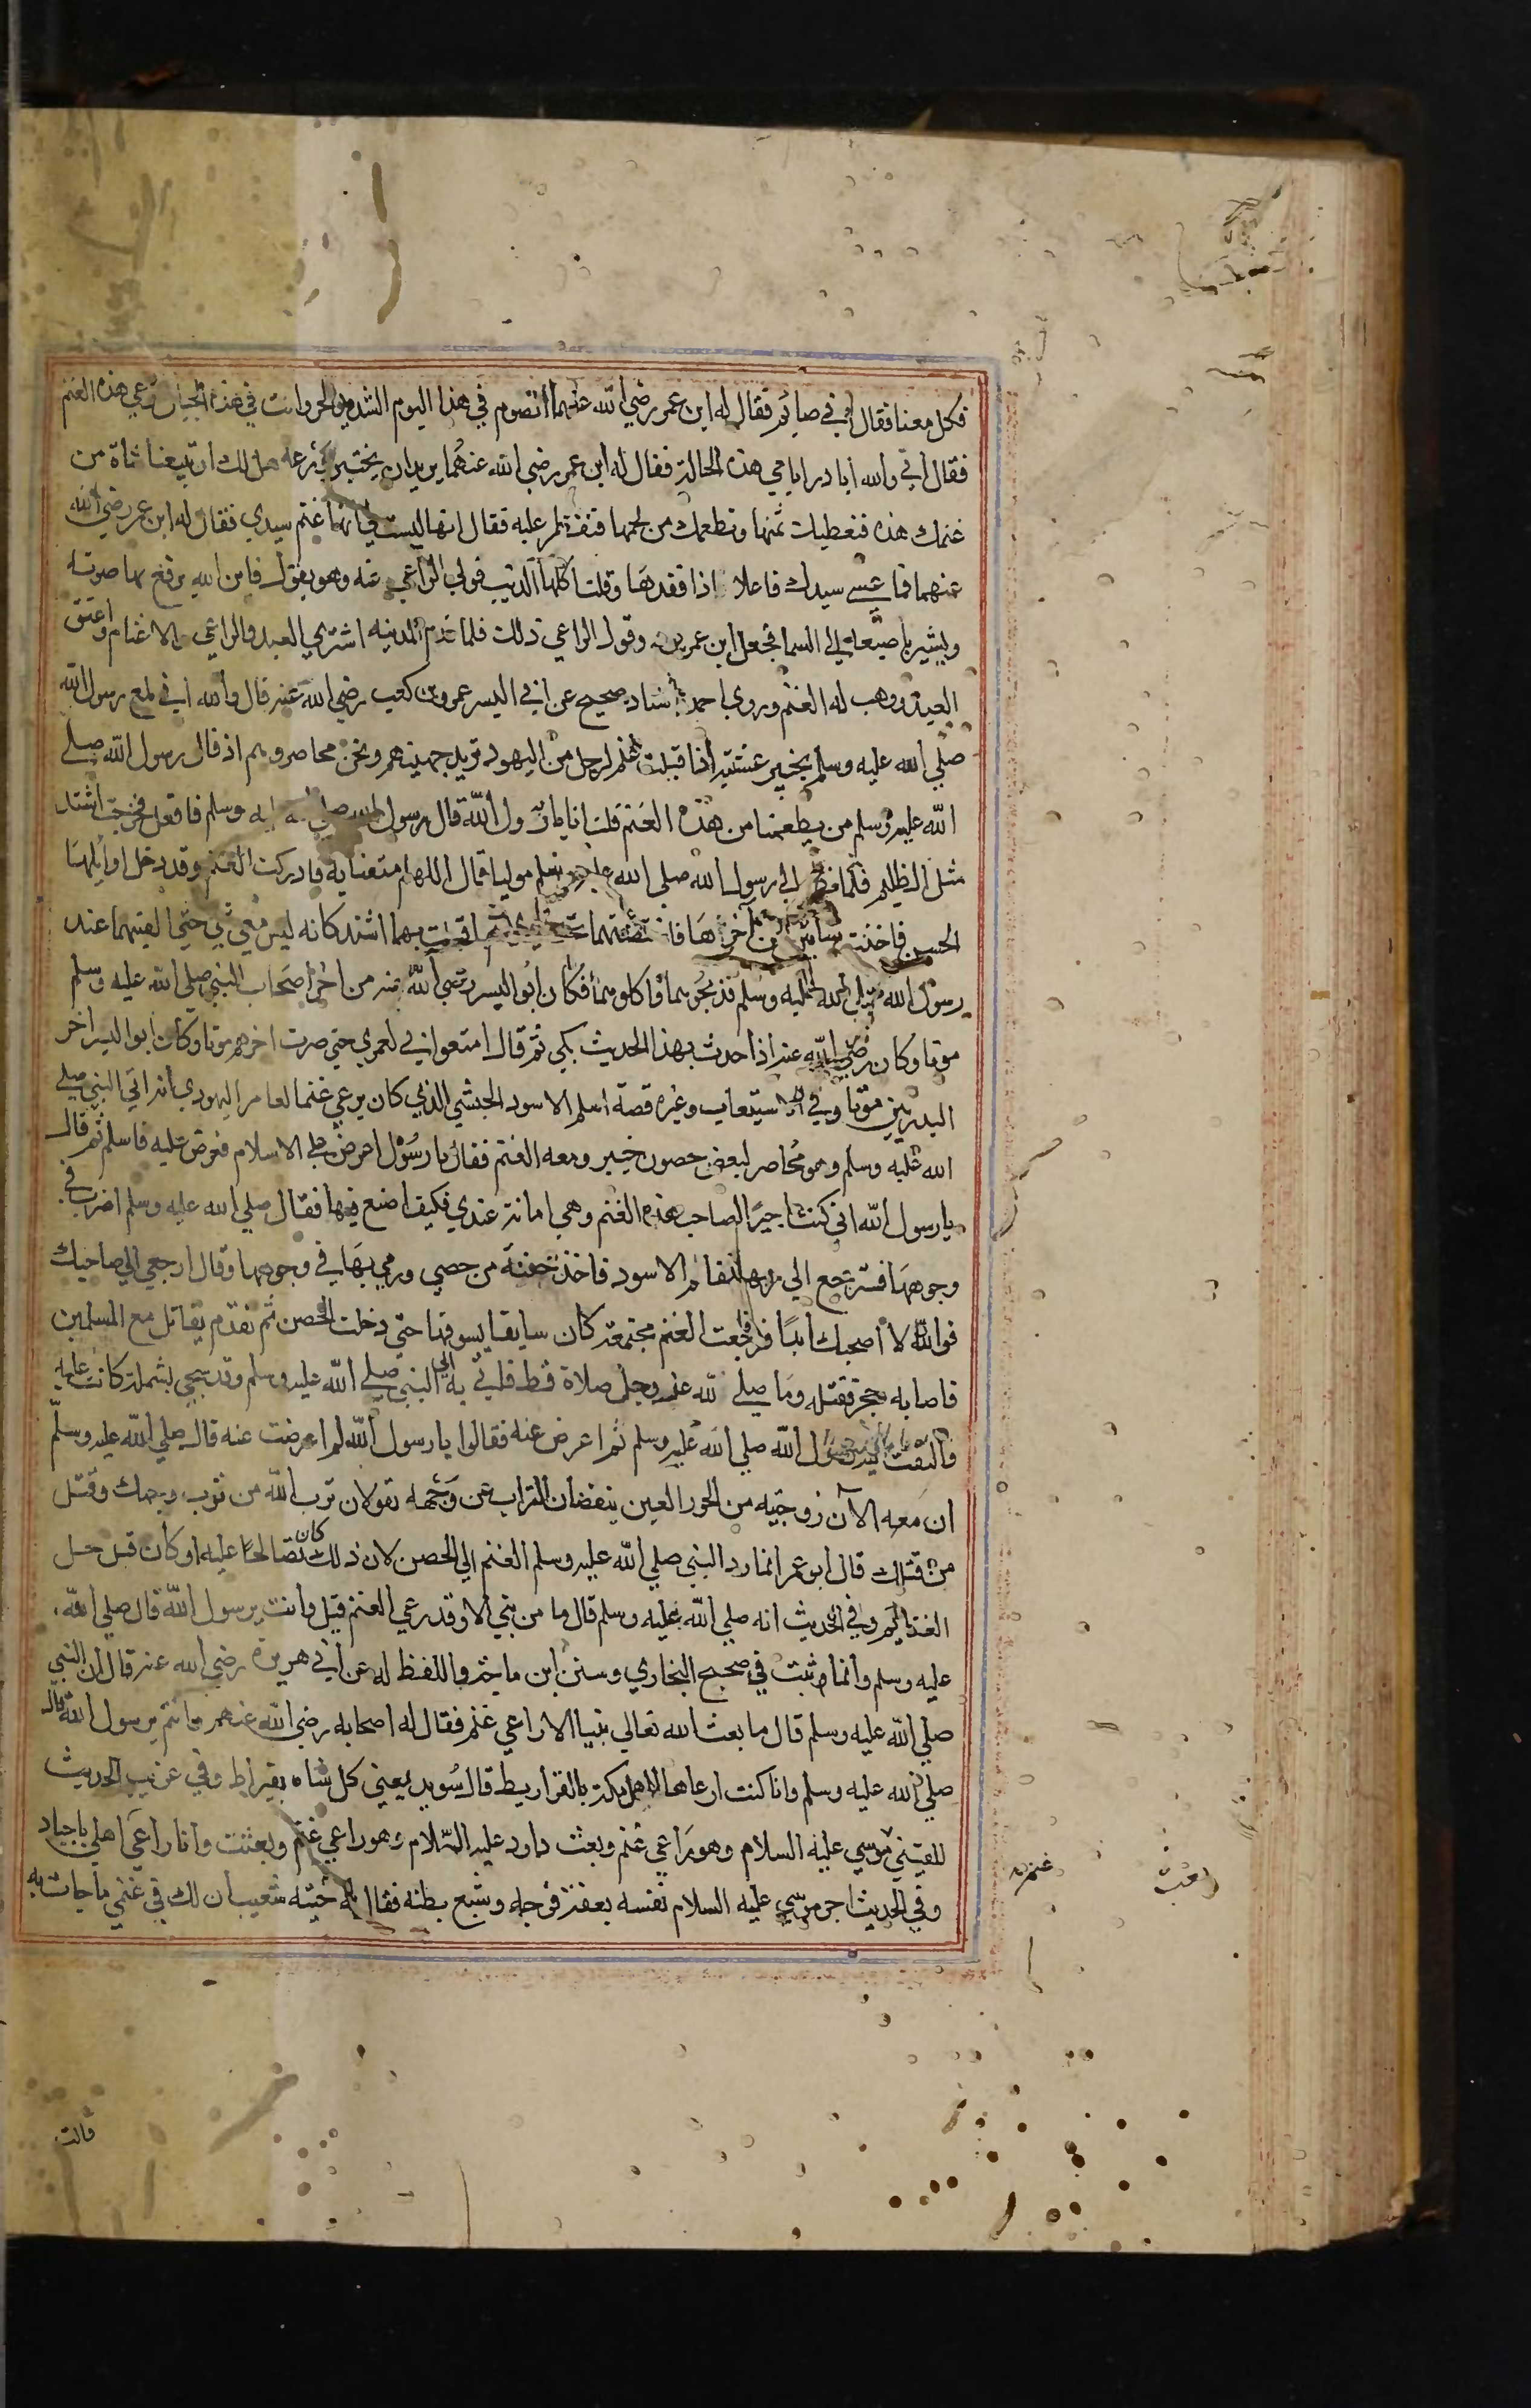 فكل معنا فقال اني صايم فقال له ابن عمر رضي الله عنهما اتصوم في هذا اليوم الشديد الحر وانت في هذه الجبال ترعي هذه الغنم
فقال اني والله أبادر ايامي هذه الحالة فقال له ابن عمر رضي الله عنهما يريد ان يختبر ورعه هل لك ان تبيعنا شاة من
غنمك هذه فنعطيك ثمنها ونطعمك من لحمها فتفطر عليه فقال انها ليست لي انها غنم سيدي فقال له ابن عمر رضي الله
عنهما فما عسي سيدك فاعلا اذا فقدها وقلت اكلها الذيب فولي الراعي عنه وهو يقول فاين الله يرفع بها صوته
ويشير باصبعه الي السما فجعل ابن عمر يردد قول الراعي ذلك فلما قدم المدينه اشتري العبد الراعي والاغنام واعتق
العبد ووهب له الغنم وروي احمد باسناد صحيح عن ابي اليسر عمرو بن كعب رضي الله عنه قال والله اني لمع رسول الله
صلي الله عليه وسلم بخيبر عشية اذ اقبلت غنم لرجل من اليهود تريد حصنهم ونحن محاصروهم اذ قال رسول الله صلي
الله عليه وسلم من يطعمنا من هذه الغنم قلت انا يا رسول الله قال رسول الله صلي الله عليه وسلم فافعل فخرجت اشتد
مثل الظليم فلما نظر الي رسول الله صلي الله عليه وسلم موليا قال اللهم امتعنا به فادركت الغنم وقد دخل اوايلها
الحصن فاخذت شاتين من اخرها فاحتضنتهما تحت يدي ثم اقبلت بهما اشتد كانه ليس معي شي حتي القيتهما عند
رسول الله صلي الله عليه وسلم فذبحوهما واكلوهما فكان ابو اليسر رضي الله عنه من اخر اصحاب النبي صلي الله عليه وسلم
موتا وكان رضي الله عنه اذا حدث بهذا الحديث بكي ثم قال امتعوا بي لعمري حتي صرت اخرهم موتا وكان ابو اليسر اخر
البدريين موتا وفي الاستيعاب وغيره قصة اسلم الاسود الحبشي الذي كان يرعي غنما لعامر اليهودي أنه اتي النبي صلي
الله عليه وسلم وهو محاصر لبعض حصون خيبر ومعه الغنم فقال يا رسول اعرض علي الاسلام فعرض عليه فاسلم ثم قال
يا رسول الله اني كنت اجيرا لصاحب هذه الغنم وهي امانة عندي فكيف اصنع فيها فقال صلي الله عليه وسلم اضرب في
وجوهها فسترجع الي ربها فقام الاسود فاخذ حفنة من حصي ورمي بها في وجوهها وقال ارجعي الي صاحبك
فوالله لا اصحبك ابدا فرجعت الغنم مجتمعة كان سايقا يسوقها حتي دخلت الحصن ثم تقدم يقاتل مع المسلمين
فاصابه حجر فقتله وما صلي لله عز وجل صلاة قط فاتي به الي النبي صلي الله عليه وسلم وقد سجي بشملة كانت عليه
فالتفت اليه رسول الله صلي الله عليه وسلم ثم اعرض عنه فقالوا يا رسول الله لم اعرضت عنه قال صلي الله عليه وسلم
ان معه الآن زوجتيه من الحور العين ينفضان التراب عن وجهه تقولان ترب الله من ترب وجهك وقتل
من قتلك قال ابو عمر انما رد النبي صلي الله عليه وسلم الغنم الي الحصن لان ذلك كان تصالحا عليه او كان قبل حل
الغنايم وفي الحديث انه صلي الله عليه وسلم قال ما من نبي الا وقد رعي الغنم قيل وانت يرسول الله قال صلي الله
عليه وسلم وانا وثبت في صحيح البخاري وسنن ابن ماجة واللفظ له عن ابي هريرة رضي الله عنه قال ان النبي
صلي الله عليه وسلم قال ما بعث الله تعالي نبيا الا راعي غنم فقال له اصحابه رضي الله عنهم وانتم يرسول الله قال
صلي الله عليه وسلم وانا كنت ارعاها لاهل مكة بالقراريط قال سويد يعني كل شاه بقيراط وفي غريب الحديث
للقتيبي موسي عليه السلام وهو راعي غنم وبعث داود عليه السلام وهو راعي غنم وبعثت وانا راعي اهلي باجياد
وفي الحديث اجر موسي عليه السلام نفسه بعفة فرجه وشبع بطنه فقال له ختنه شعيب ان لك في غنمي ما جات به
بعث
غنم
قالت